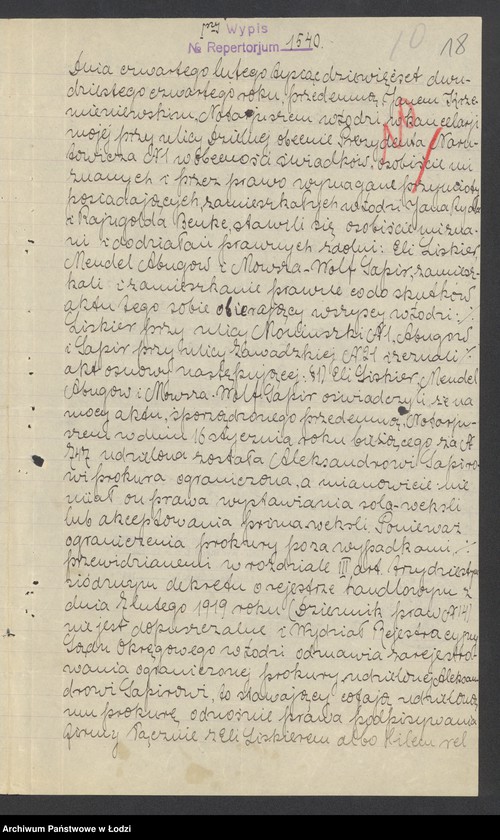 przy Wypis
№ Repertorjum 1540.
10 18
Dnia czwartego lutego tysiąc dziewięćset dwu-
dziestego czwartego roku, przedemną, Janem Krze-
mieniewskim, Notarjuszem w Łodzi, w kancelarji
mojej przy ulicy Dzielnej obecnie Prezydenta Naru-
towicza № 1 w obecności świadków, osobiście mi
znanych i przez prawo wymagane przymioty
posiadających, zamieszkałych w Łodzi, Jana
i Rajngolda Benke, stawili się osobiście mi zna-
ni i do działań prawnych zdolni: Eli Liskier,
Mendel Abugow i Mowsza-Wolf Sapir, zamiesz-
kali i zamieszkanie prawne co do skutków
aktu tego sobie obierający wszyscy w Łodzi:
Liskier przy ulicy Moniuszki № 1, Abugow
i Sapir przy ulicy Zawadzkiej № 21 i zeznali
akt osnowy następującej: §1) Eli Liskier, Mendel
Abugow i Mowsza-Wolf Sapir oświadczyli, że na
mocy aktu, sporządzonego przedemną, Notarju-
szem w dniu 16 stycznia roku bieżącego za №
747 udzielona została Aleksandrowi Sapiro-
wi prokura ograniczona, a mianowicie: nie
miał on prawa wystawiania sola-weksli
lub akceptowania prima weksli. Ponieważ
ograniczenia prokury poza wypadkami
przewidzianemi w rozdziale III art. trzydziestym
siódmym dekretu o rejestrze handlowym z
dnia 7 lutego 1919 roku (Dziennik praw № 14)
nie jest dopuszczalne i Wydział Rejestracyjny
Sądu Okręgowego w Łodzi odmawia zarejestro-
wania ograniczonej prokury, udzielonej Aleksan-
drowi Sapirowi, to stawający cofają udzieloną
mu prokurę odnośnie prawa podpisywania
firmy łącznie z Eli Liskierem albo Hilem vel
Archiwum Państwowe w Łodzi